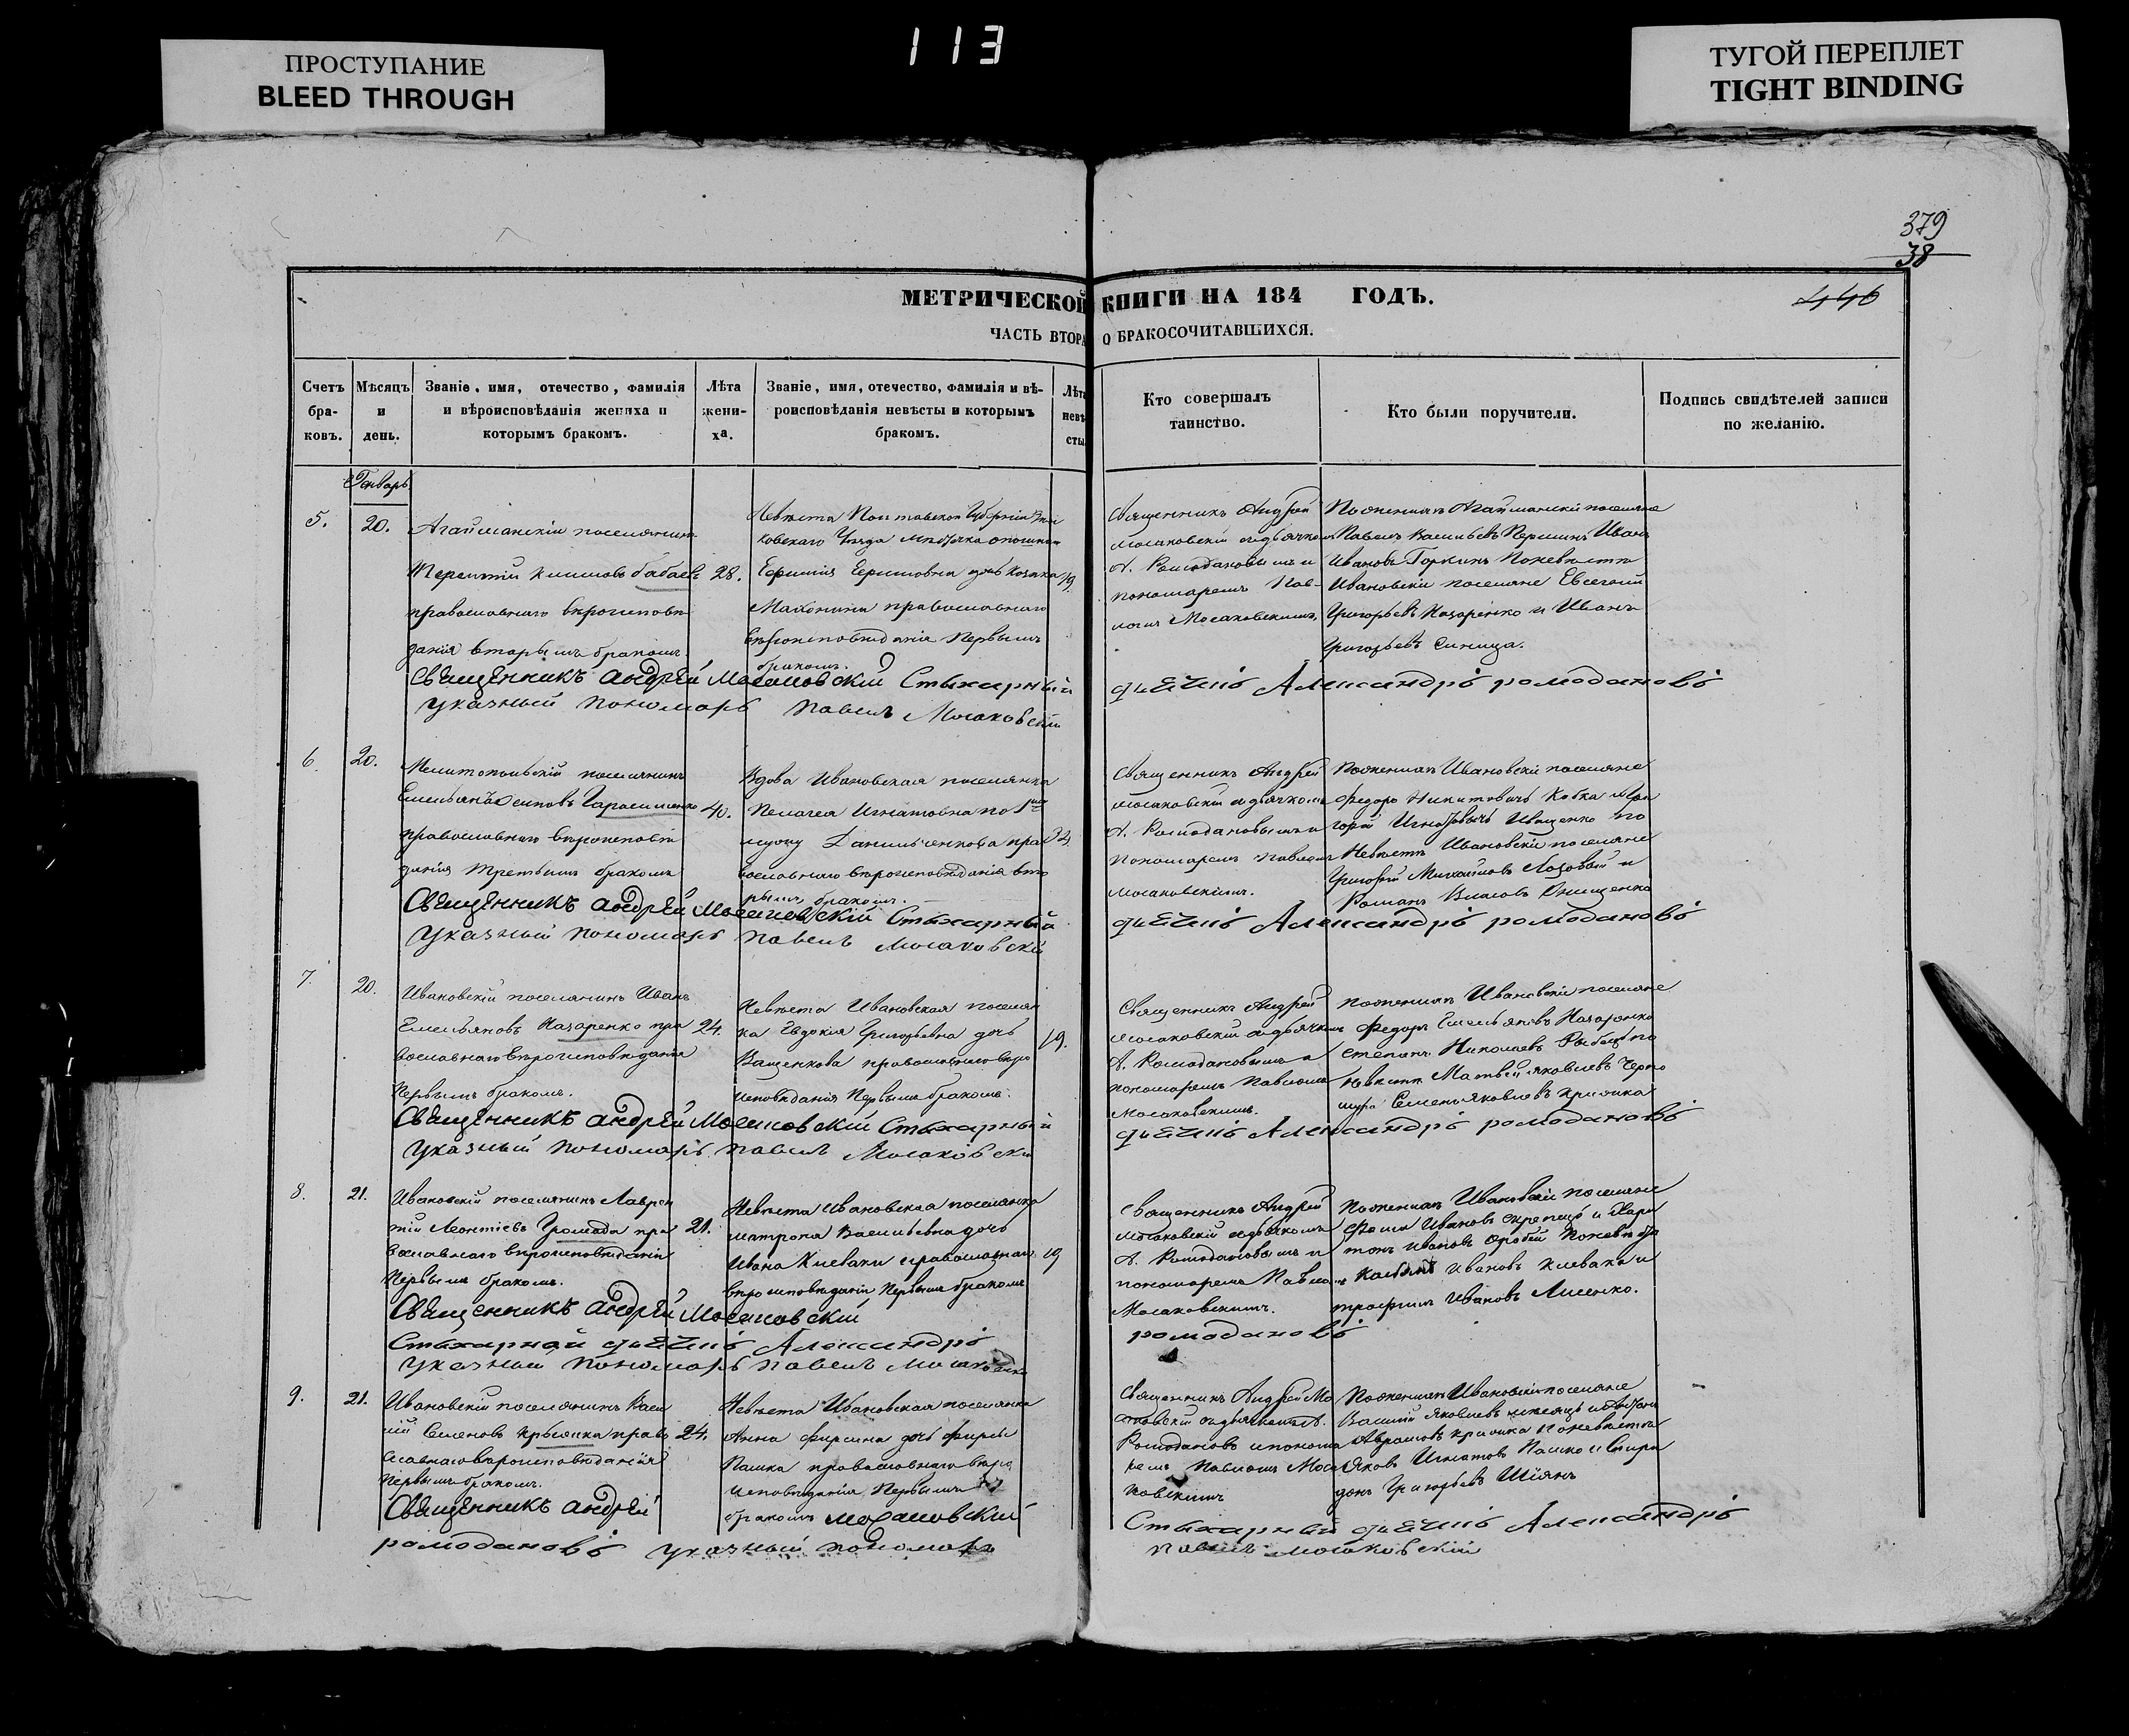 ПРОСТУПАНИЕ
BLEED THROUGH
113
ТУГОЙ ПЕРЕПЛЕТ
TIGHT BINDING
379
38
446
МЕТРИЧЕСКОЙ КНИГИ НА 184 ГОДЪ.
ЧАСТЬ ВТОРА О БРАКОСОЧИТАВШИХСЯ.
Счетъ бра- ковъ.
Мѣсяцъ и день.
Званіе, имя, отечество, фамилія и вѣроисповѣданія жениха и которымъ бракомъ.
Лѣта жени- ха.
Званіе, имя, отечество, фамилія и вѣ- роисповѣданія невѣсты и которымъ бракомъ.
Лѣта невѣ сты
Кто совершалъ таинство.
Кто были поручители.
Подпись свидѣтелей записи по желанію.
Генварь
5.
20.
Агайманскій поселянинъ
Терентій Климовъ Бабаевъ
православнаго вѣроисповѣ
данія вторымъ бракомъ.
28.
Невѣста Полтавской Губерніи
ковскаго Уѣзда Мѣстечка
Ефимія Ефимовна дочь Козака
православнаго
вѣроисповѣданія первымъ
бракомъ.
19.
Священникъ Андрей
Мосаковскій съ дьячкомъ
А. Ромодановымъ и
пономаремъ Пав-
ломъ Мосаковскимъ.
По женихѣ Агайманскіе поселяне
Павелъ Васильевъ Иванъ
Ивановъ Горкинъ По невѣстѣ
Ивановскіе поселяне Евсегній
Григорьевъ Назаренко и Иванъ
Григорьевъ Синица.
Священникъ Андрей Мосаковскій Стыхарный дьячекъ Александръ Ромодановъ
Указный пономарь Павелъ Мосаковскій
6.
20.
Мелитопольскій поселянинъ
Емельянъ Осиповъ Гарасименко
православнаго вѣроисповѣ
данія третьимъ бракомъ
40.
Вдова Ивановская поселянка
Пелагея Игнатовна по 1му
мужу Данильченкова пра
вославнаго вѣроисповѣданія вто
рымъ бракомъ.
34.
Священникъ Андрей
Мосаковскій съ дьячкомъ
А. Ромодановымъ и
пономаремъ Павломъ
Мосаковскимъ.
По женихѣ Ивановскіе поселяне
Федоръ Никитовичъ Кобка и Гри
горій Игнатовичъ Иващенко по
Невѣстѣ Ивановскіе поселяне
Григорій Михайловъ Лозовой и
Романъ Власовъ Онищенко
Священникъ Андрей Мосаковскій Стыхарный дьячекъ Александръ Ромодановъ
Указный пономарь Павелъ Мосаковскій
7.
20.
Ивановскій поселянинъ Иванъ
Емельяновъ Назаренко пра
вославнаго вѣроисповѣданія
первымъ бракомъ.
24.
Невѣста Ивановская поселян
ка Евдокія Григорьевна дочь
Ващенкова православнаго вѣро
исповѣданія первымъ бракомъ.
19.
Священникъ Андрей
Мосаковскій съ дьячкомъ
А. Ромодановымъ и
пономаремъ Павломъ
Мосаковскимъ.
По женихѣ Ивановскіе поселяне
Федоръ Емельяновъ Назаренко
Степанъ Николаевъ по
Невѣстѣ Матвей Яковлевъ
Семенъ Яковлевъ
Священникъ Андрей Мосаковскій Стыхарный дьячекъ Александръ Ромодановъ
Указный пономарь Павелъ Мосаковскій
8.
21.
Ивановскій поселянинъ Лаврен
тій Леонтіевъ Громада пра
вославнаго вѣроисповѣданія
первымъ бракомъ.
21.
Невѣста Ивановская поселянка
Матрона Васильевна дочь
Ивана Клеваки православнаго
вѣроисповѣданія первымъ бракомъ
19
Священникъ Андрей
Мосаковскій съ дьячкомъ
А. Ромодановымъ и
пономаремъ Павломъ
Мосаковскимъ.
По женихѣ Ивановскіе поселяне
Фома Ивановъ и Хари
тонъ Ивановъ По невѣстѣ
Ивановъ Клевака и
Трофимъ Ивановъ Лисенко.
Священникъ Андрей Мосаковскій
Стыхарной дьячекъ Александръ Ромодановъ
Указный пономарь Павелъ Мосаковскій
9.
21.
Ивановскій поселянинъ Васи
лій Семеновъ православ
славнаго вѣроисповѣданія
первымъ бракомъ.
24.
Невѣста Ивановская поселянка
Анна Фирсина дочь Фирса
Пашка православнаго вѣро
исповѣданія первымъ
бракомъ
Священникъ Андрей Мо
саковскій съ дьячкомъ А.
Ромодановъ и понома
ремъ Павломъ Моса
ковскимъ
По женихѣ Ивановскіе поселяне
Василій Яковлевъ
Аврамовъ По невѣстѣ
Яковъ Игнатовъ Пашко и Спири
донъ Григорьевъ Шіянъ
Священникъ Андрей Мосаковскій Стыхарный дьячекъ Александръ
Ромодановъ Указный пономарь Павелъ Мосаковскій